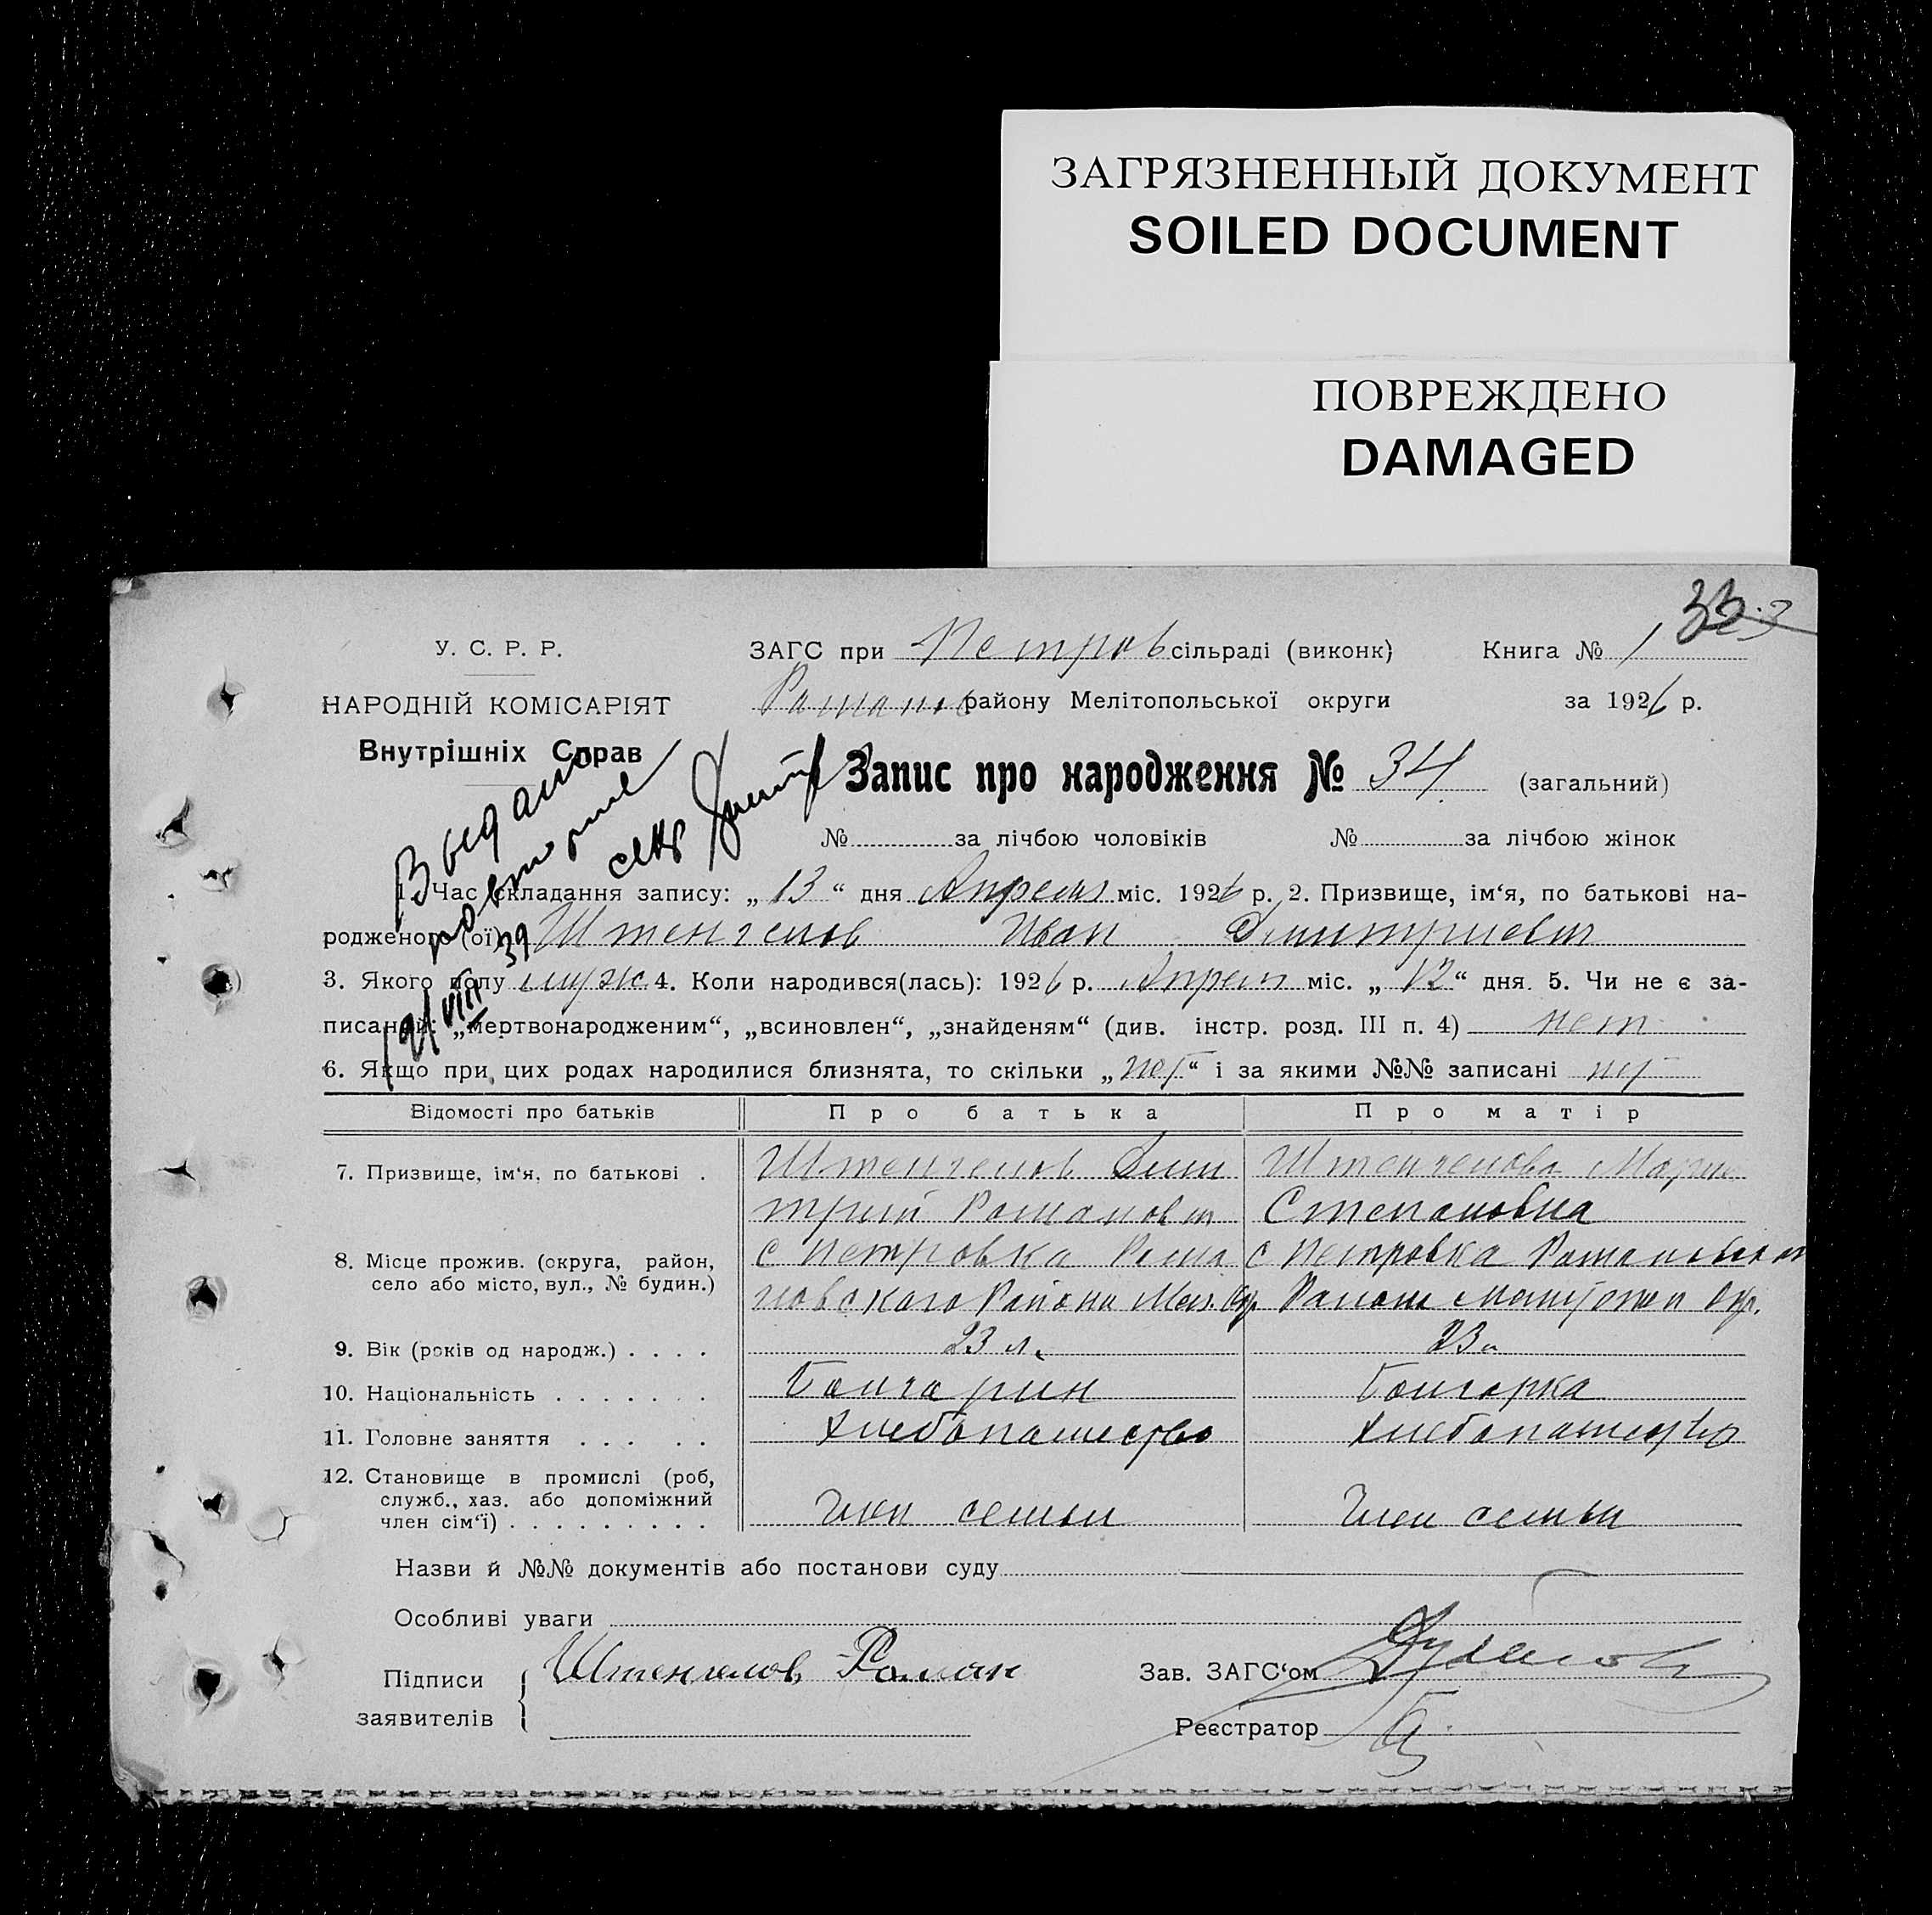 ЗАГРЯЗНЕННЫЙ ДОКУМЕНТ
SOILED DOCUMENT
ПОВРЕЖДЕНО
DAMAGED
У. С. Р. Р.
ЗАГС при Петров сільраді (виконк) Книга № 1
НАРОДНІЙ КОМІСАРІЯТ
Романов району Мелітопольської округи за 1926 р.
Внутрішніх Справ
Запис про народження № 34. (загальний)
№ за лічбою чоловіків № за лічбою жінок
Выдано
повторне
секр
21/VIII 39
1. Час складання запису: „13“ дня Апреля міс. 1926 р. 2. Призвище, ім‘я, по батькові на-
родженого (ої) Штенгелов Иван Димитриевич
3. Якого полу муж 4. Коли народився(лась): 1926 р. Апреля міс. „12“ дня. 5. Чи не є за-
писаний: „мертвонародженим“, „всиновлен“, „знайденям“ (див. інстр. розд. III п. 4) нет
6. Якщо при цих родах народилися близнята, то скільки „нет“ і за якими №№ записані нет
Відомості про батьків Про батька Про матір
7. Призвище, ім‘я, по батькові . Штенгелов Дми Штенгелова Мария
трий Романович Степановна
8. Місце прожив. (округа, район, с Петровка Рома с Петровка Романовского
село або місто, вул., № будин.) новского Района Мел. Окр. Района Окр.
9. Вік (років од народж.) . . . . 23 л. 23 л
10. Національність . . . . . . . Болгарин Болгарка
11. Головне заняття . . . . . Хлебопашество Хлебопашество
12. Становище в промислі (роб,
служб., хаз. або допоміжний
член сім‘ї) . . . . . . . . . член семьи член семьи
Назви й №№ документів або постанови суду
Особливі уваги
Підписи Штенгелов Роман Зав. ЗАГС‘ом
заявителів
Реєстратор